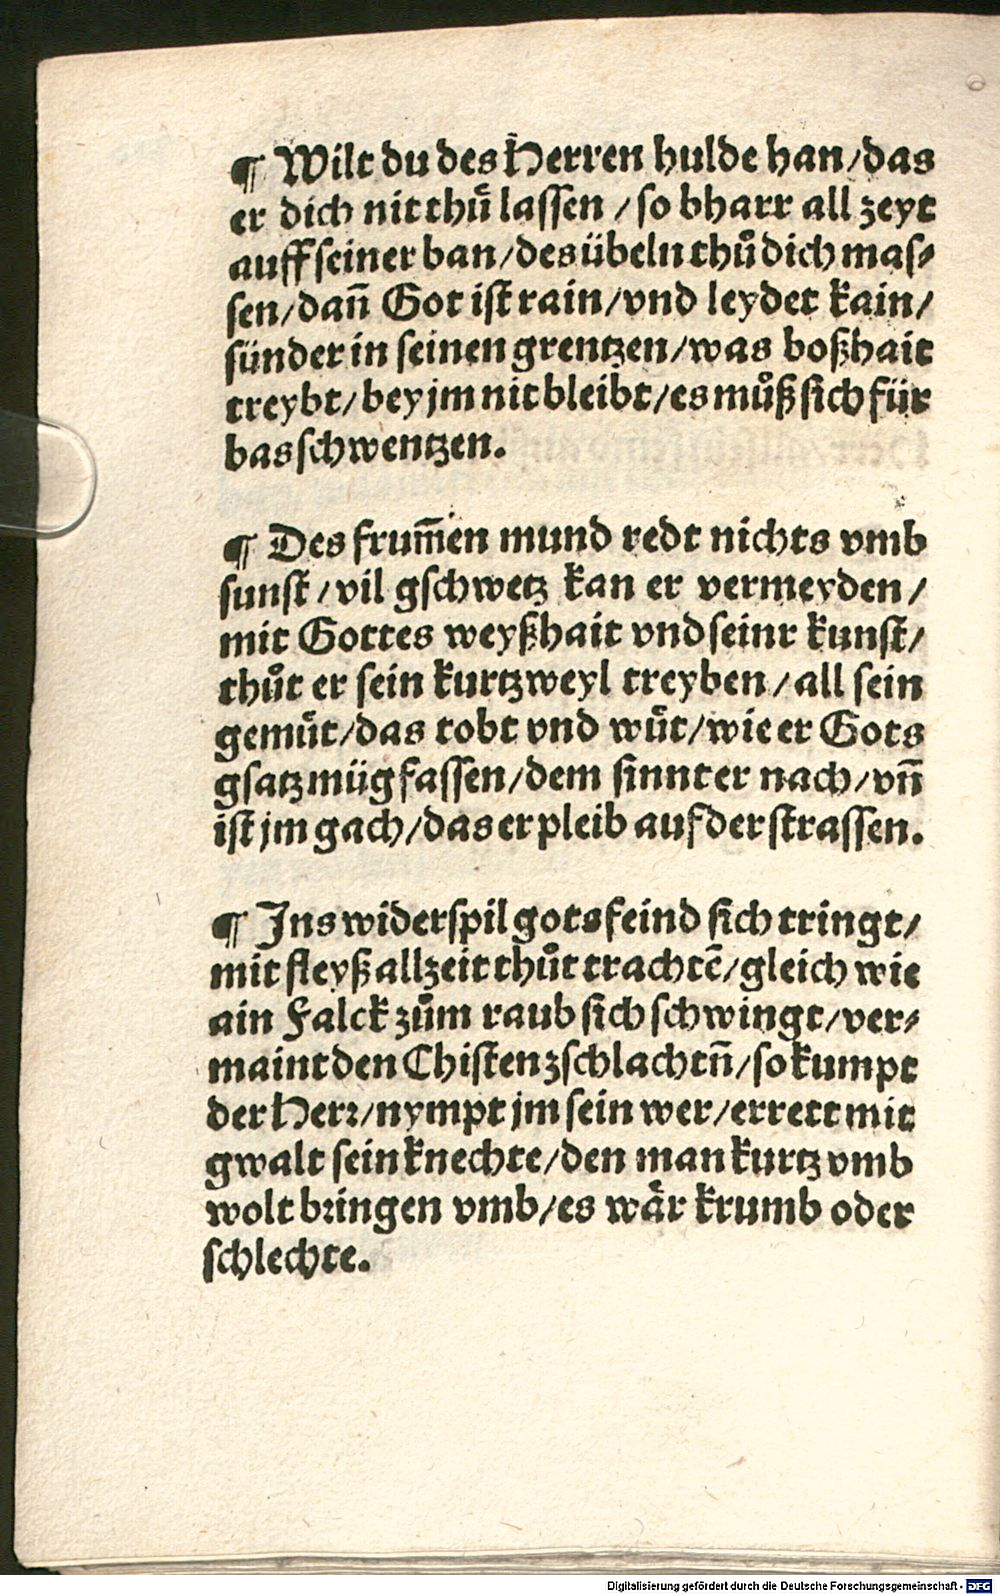 ¶ Wilt du des Herren hulde han/das
er dich nit thuͤ lassen / so bharr all zeyt
auff seiner ban/des übeln thuͦ dich mas⸗
sen/dañ Got ist rain/vnd leydet kain/
sünder in seinen grentzen/was boßhait
treybt/bey jm nit bleibt/es muͦß sich für
bas schwentzen.
¶ Des frum̄en mund redt nichts vmb
sunst/vil gschwetz kan er vermeyden/
mit Gottes weyßhait vnd seinr kunst/
thuͦt er sein kurtzweyl treyben/all sein
gemuͤt/das tobt vnd wuͤt/wie er Gots
gsatz müg fassen/dem sinnt er nach/vñ
ist jm gach/das er pleib auf der strassen.
¶ Ins widerspil gots feind sich tringt/
mit fleyß allzeit thuͦt trachtē/gleich wie
ain Falck zuͦm raub sich schwingt/ver⸗
maint den Chisten zschlachtñ/so kumpt
der Herr/nympt jm sein wer/errett mit
gwalt sein knechte/den man kurtz vmb
wolt bringen vmb/es waͤr krumb oder
schlechte.
Digitalisierung gefördert durch die Deutsche Forschungsgemeinschaft - DFG